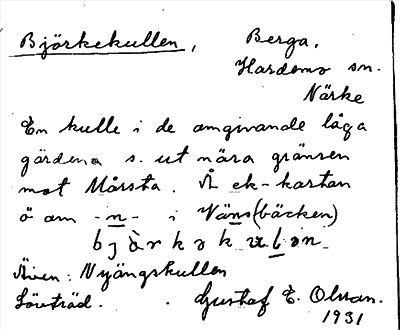 Björkekullen, Berga,
Hardemo sn.
Närke
En kulle i de omgivande låga
gärdena s. ut nära gränsen
mot Mårsta. Å ek-kartan
ö om -n- i Väns(bäcken)
Även: Nyängskullen
Lövträd. Gustaf E. Olsson.
1931